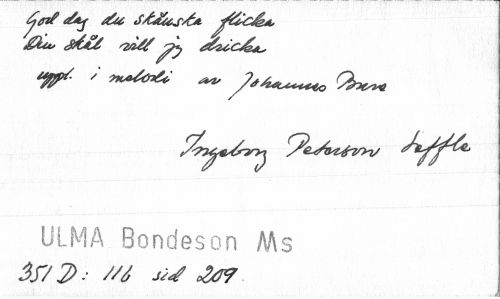 God dag du skånska flicka
Din skål vill jg dricka
uppt. i melodi av Johannes Bure
Ingeborg Peterson Säffle
ULMA Bondeson Ms
351 D: 116 sid 209.